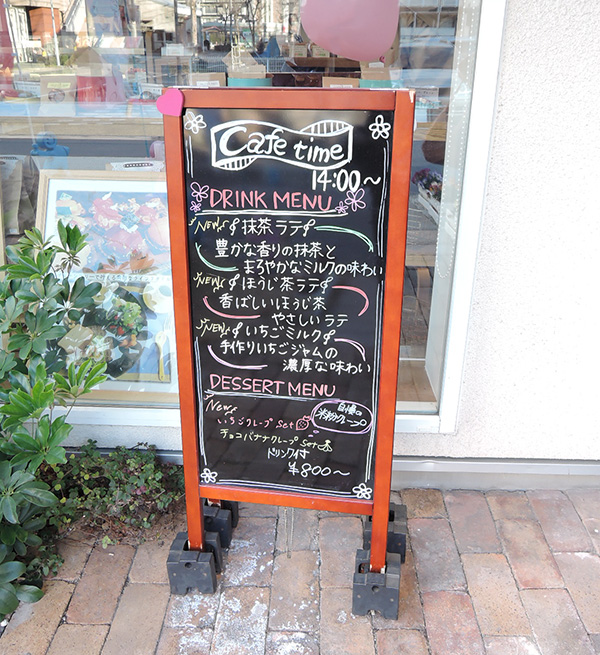 Cafe time
14:00〜
DRINK MENU
NEW 抹茶ラテ
豊かな香りの抹茶と
まろやかなミルクの味わい
NEW ほうじ茶ラテ
香ばしいほうじ茶
やさしいラテ
NEW いちごミルク
手作りいちごジャムの
濃厚な味わい
DESSERT MENU
New
自慢の
米粉クレープ
いちごクレープ Set
チョコバナナクレープ Set
ドリンク付
¥800〜